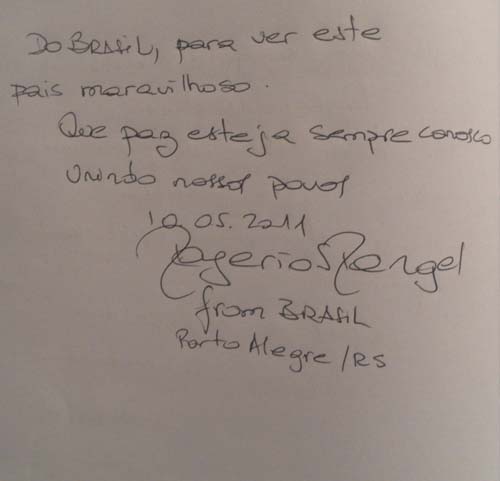 Do BRASIL, para ver este
pais maravilhoso.
Que paz esteja sempre conosco
Unindo nossos povos
10.05.2011
Rogerio S Rangel
from BRASIL
Porto Alegre /RS